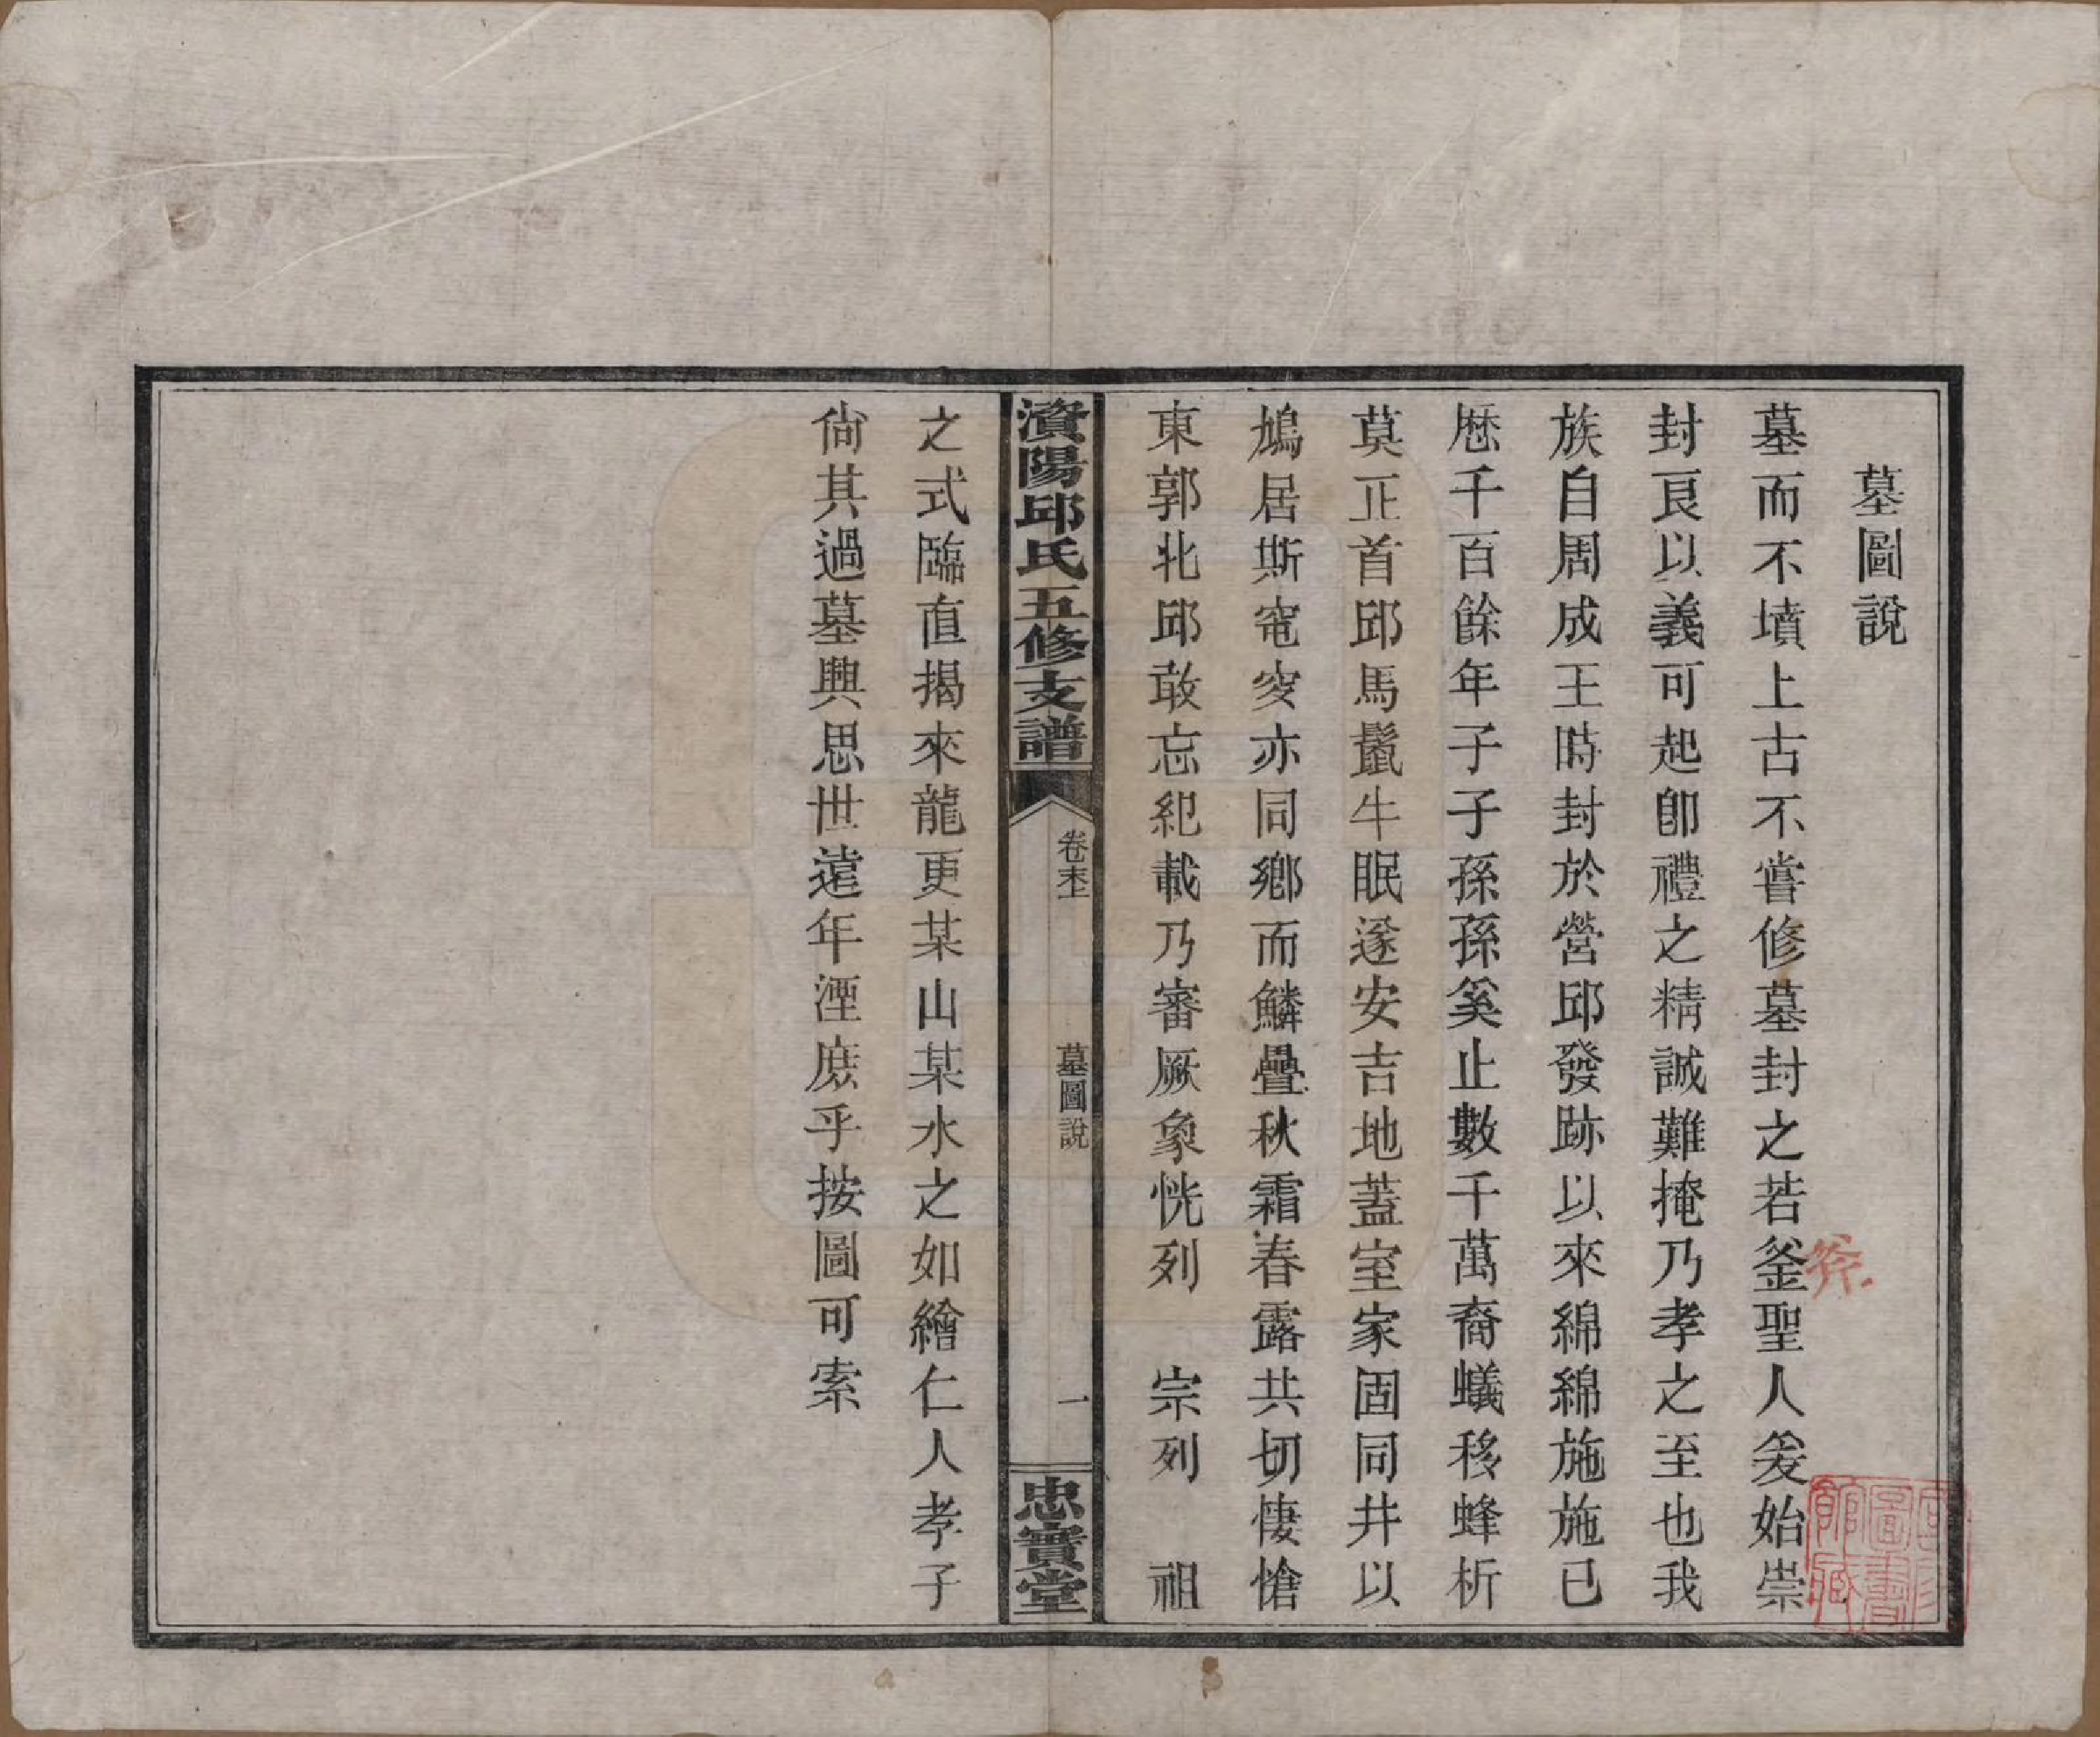 墓圖說
墓而不墳上古不嘗修墓封之若釜聖人爰始崇
斧
封良以義可起卽禮之精誠難掩乃孝之至也我
族自周成王時封於營邱發跡以來綿綿施施已
歷千百餘年子子孫孫奚止數千萬裔蟻移蜂析
莫正首邱馬鬣牛眠遂安吉地蓋室家固同井以
鳩居斯窀穸亦同鄉而鱗疊秋霜春露共切悽愴
東郭北邱敢忘紀載乃審厥象恍列　宗列　祖
濱陽邱氏五修支譜
卷末上
墓圖說
一
忠實堂
之式臨直揭來龍更某山某水之如繪仁人孝子
倘其過墓興思世遠年湮庶乎按圖可索
圖書館藏